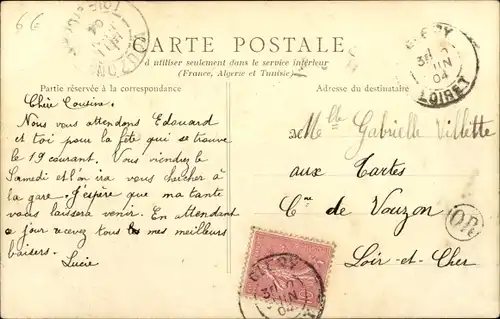 6 E
CARTE POSTALE
à utiliser seulement dans le service intérieur
(France, Algérie et Tunisie)
Partie réservée à la correspondance
Adresse du destinataire
Chère Cousine.
Nous vous attendons Edouard
et toi pour la fête qui se trouve
le 19 courant. Vous viendrez le
Samedi et l'on ira vous chercher à
la gare. J'espère que ma tante
vous laissera venir. En attendant
ce jour recevez tous les mes meilleurs
baisers.
Lucie
Mlle Gabrielle Villette
aux Tartes
Cne de Vouzon
Loir-et-Cher
JUIN
04
LOIRET
OR
JUIN
04